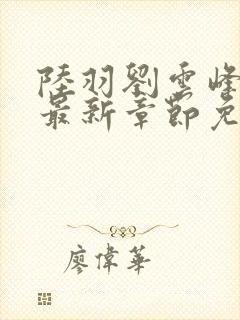 陸羽劉雲峰
最新章節免
廖偉華